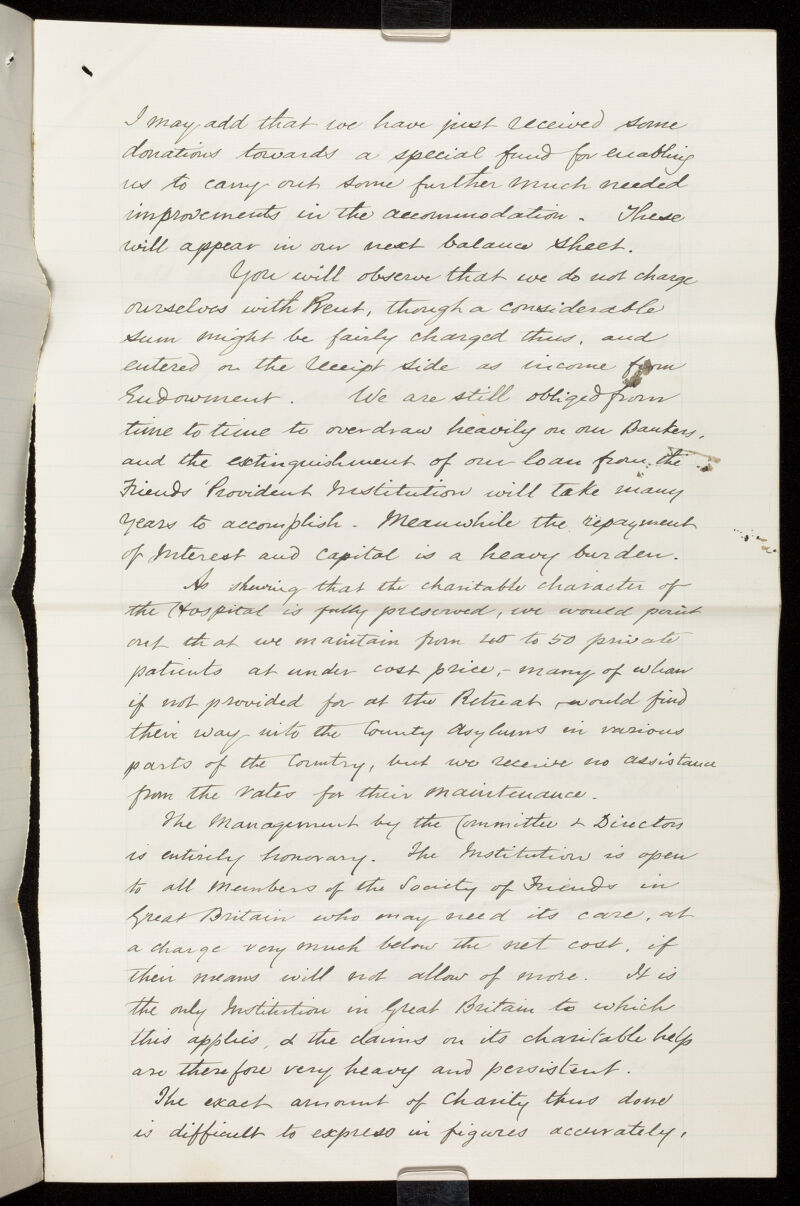 I may add that we have just received some
donations towards a special fund for enabling
us to carry out some further much needed
improvements in the accommodation. These
will appear in our next balance sheet.
You will observe that we do not charge
ourselves with Rent, though a considerable
sum might be fairly charged thus, and
entered on the receipt side as income from
Endowment. We are still obliged from
time to time to overdraw heavily on our Bankers,
and the extinguishment of our loan from the
Friends' Provident Institution will take many
years to accomplish. Meanwhile the repayment
of Interest and Capital is a heavy burden.
As shewing that the charitable character of
the Hospital is fully preserved, we would point
out that we maintain from 40 to 50 private
patients at under cost price, - many of whom
if not provided for at the Retreat, would find
their way into the County Asylums in various
parts of the Country, but we receive no assistance
from the rates for their maintenance.
The Management by the Committee & Directors
is entirely honorary. The Institution is open
to all Members of the Society of Friends in
Great Britain who may need its care, at
a charge very much below the net cost, if
their means will not allow of more. It is
the only Institution in Great Britain to which
this applies, & the claims on its charitable help
are therefore very heavy and persistent.
The exact amount of Charity thus done
is difficult to express in figures accurately,